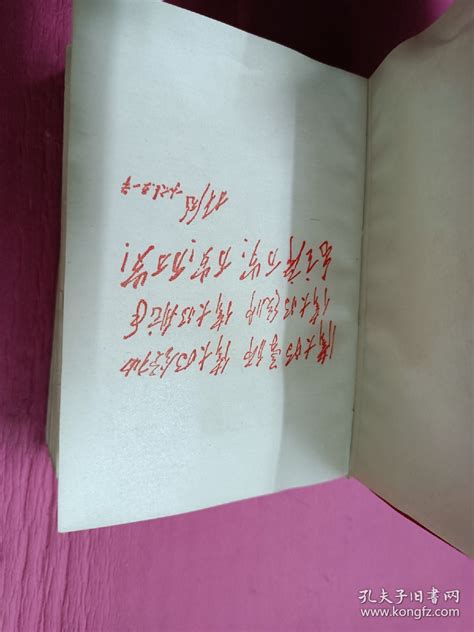 伟大的导师 伟大的领袖
伟大的统帅 伟大的舵手
毛主席万岁!万岁!万万岁!
林彪
孔夫子旧书网
www.kongfz.com